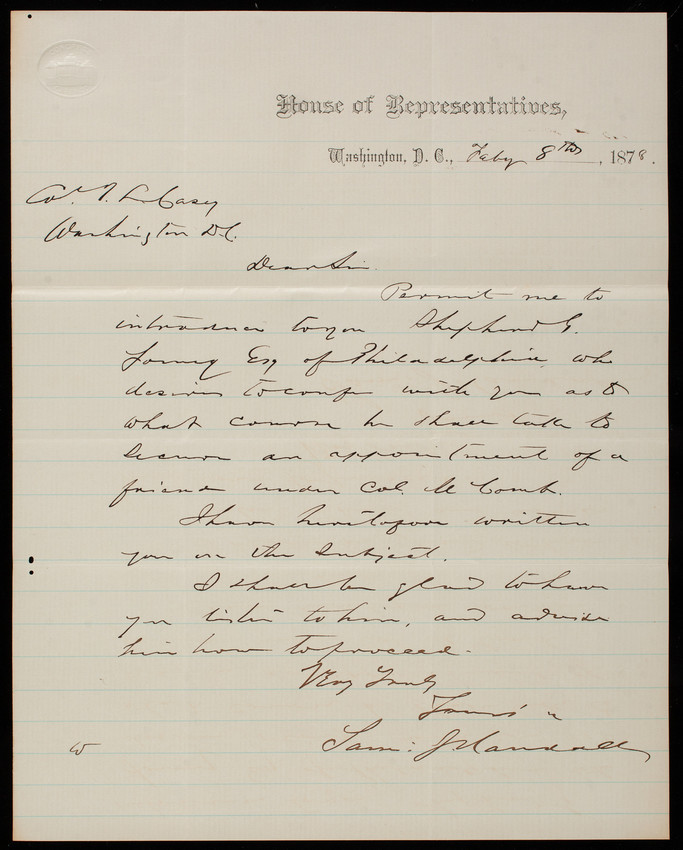 House of Representatives,
Washington, D. C., Feby 8th, 1878.
Col T. L. Casey
Washington D.C.
Dear Sir
Permit me to
introduce to you Shepherd G.
Young Esq of Philadelphia, who
desires to confer with you as to
what course he shall take to
secure an appointment of a
friend under Col. McComb.
I have heretofore written
you on the subject.
I shall be glad to have
you listen to him, and advise
him how to proceed.
Very Truly
Yours
Sam: J Randall